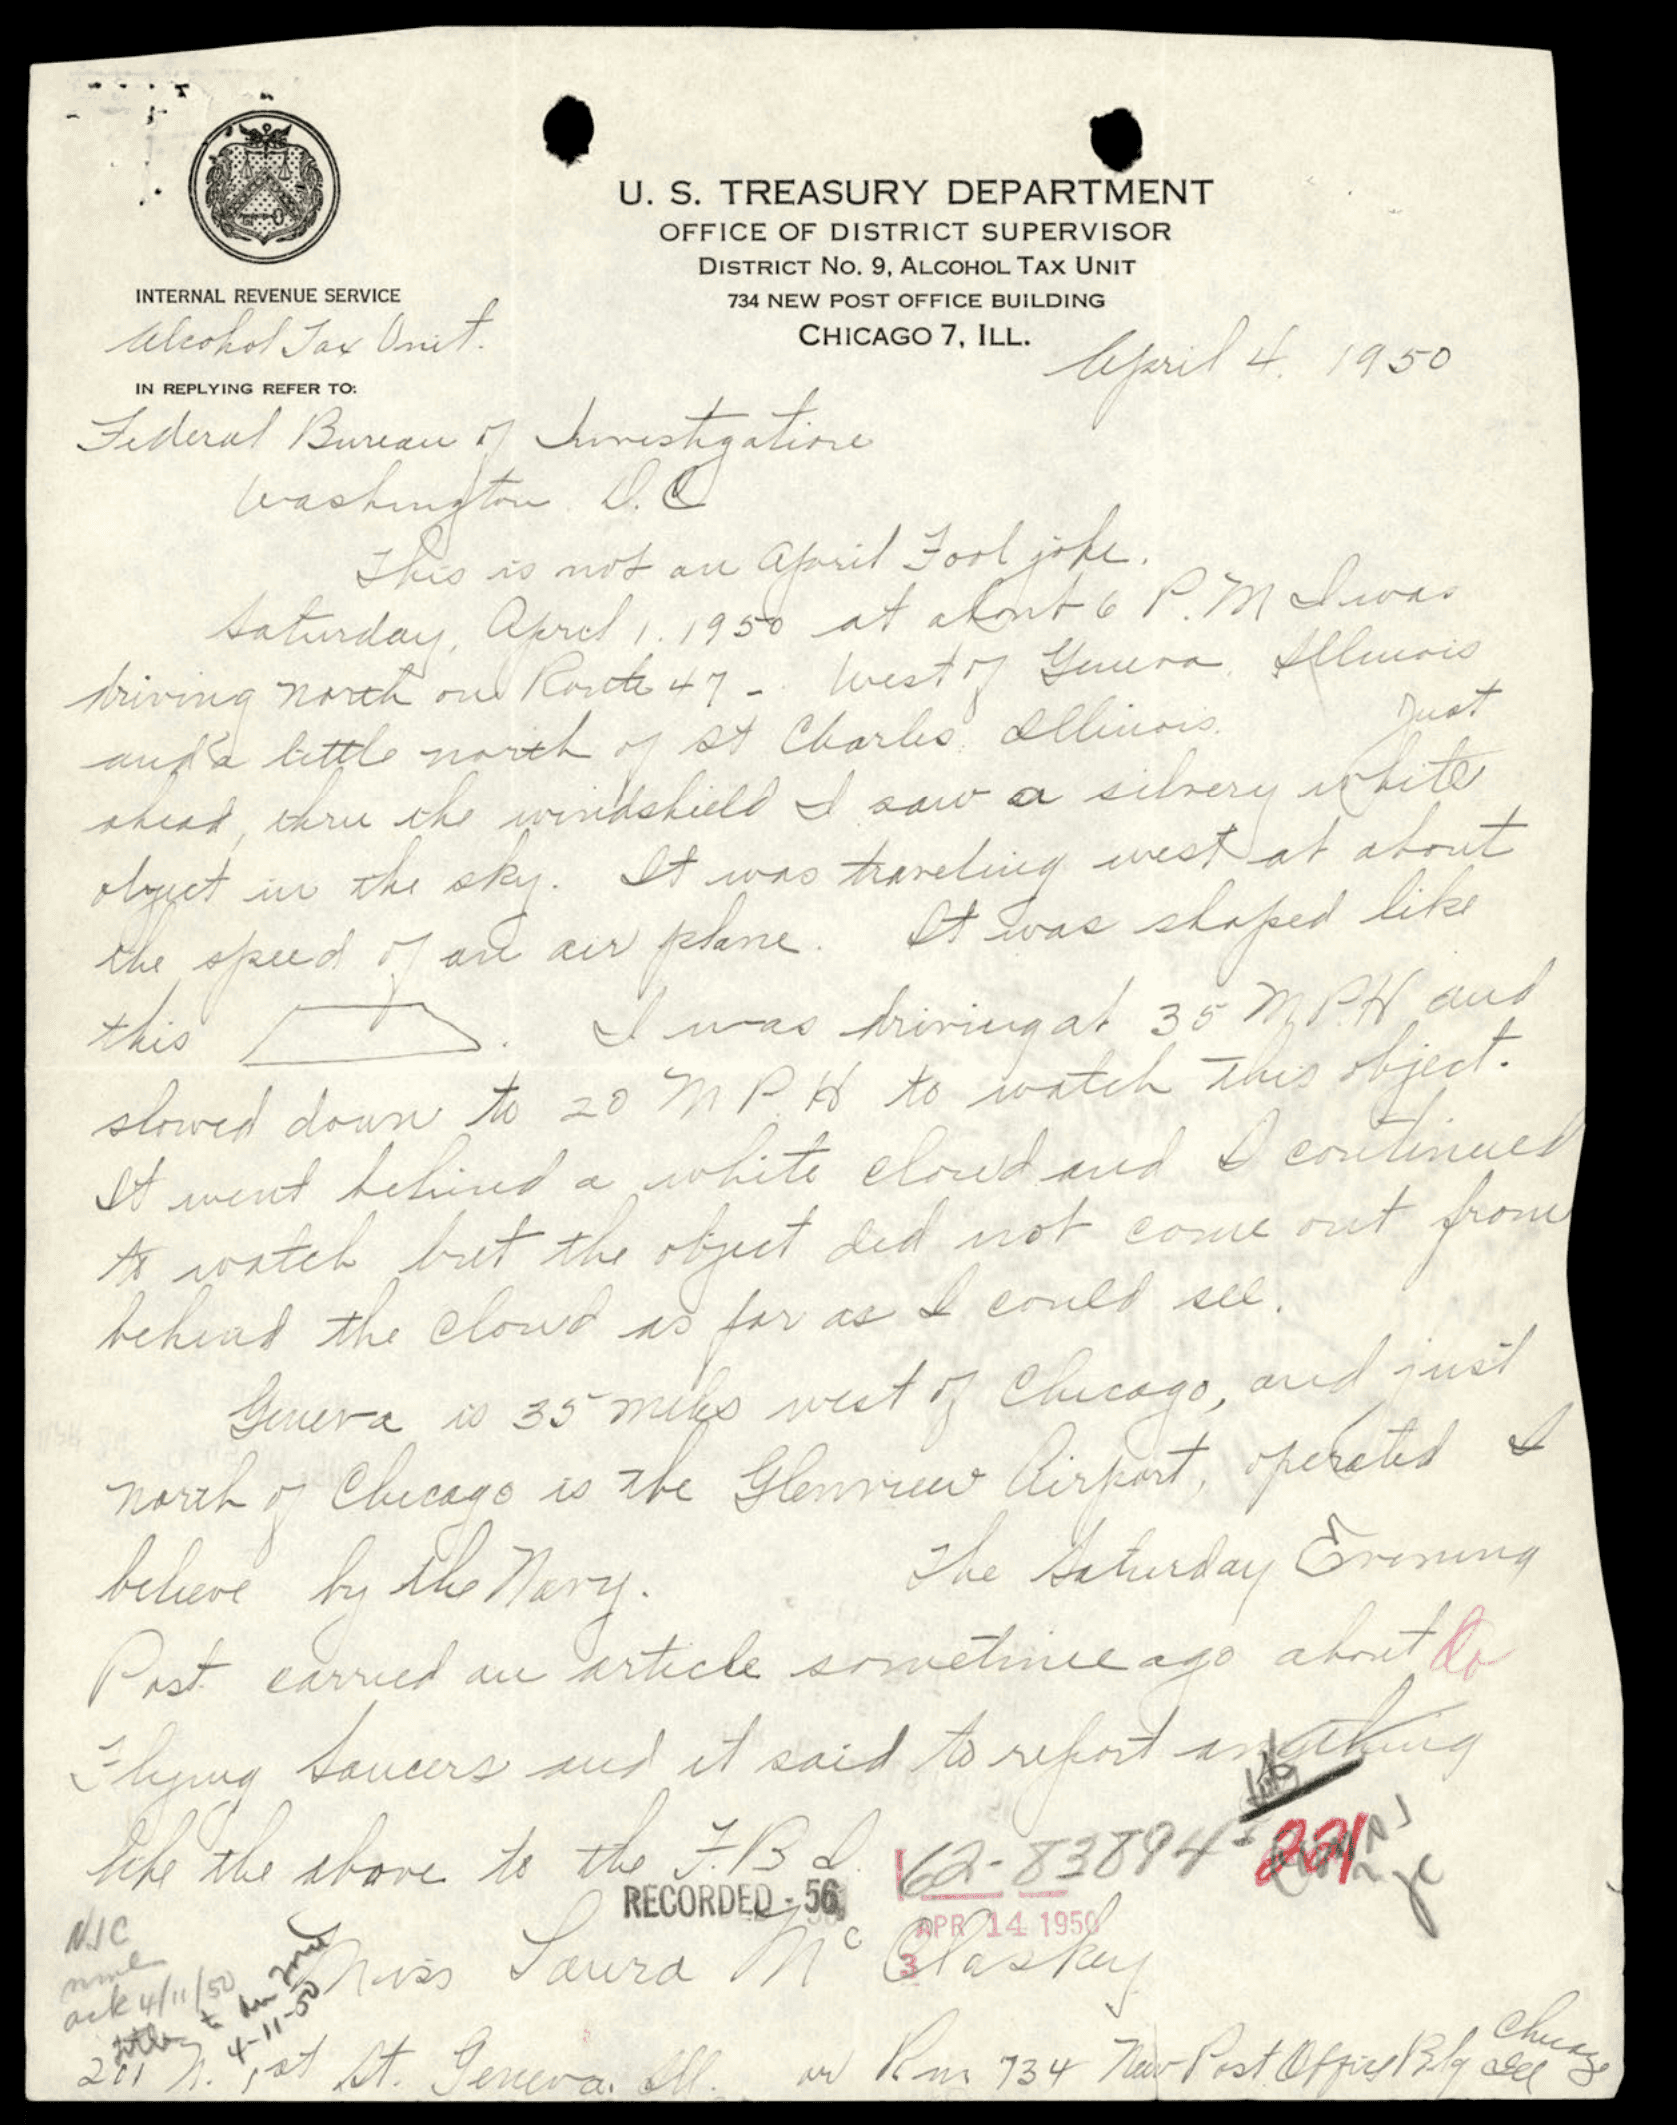 U. S. TREASURY DEPARTMENT
OFFICE OF DISTRICT SUPERVISOR
DISTRICT NO. 9, ALCOHOL TAX UNIT
734 NEW POST OFFICE BUILDING
CHICAGO 7, ILL.
INTERNAL REVENUE SERVICE
Alcohol Tax Unit.
April 4. 1950
IN REPLYING REFER TO:
Federal Bureau of Investigation
Washington D.C
This is not an April Fool joke.
Saturday, April 1. 1950 at about 6 P.M I was
driving north on Route 47 - West of Geneva, Illinois
and a little north of St Charles, Illinois. Just
ahead, thru the windshield I saw a silvery white
object in the sky. It was traveling west at about
the speed of an air plane. It was shaped like
this . I was driving at 35 M.P.H and
slowed down to 20 M.P.H to watch this object.
It went behind a white cloud and I continued
to watch but the object did not come out from
behind the cloud as far as I could see.
Geneva is 35 miles west of Chicago, and just
north of Chicago is the Glenview Airport, operated I
believe by the Navy. The Saturday Evening
Post carried an article sometime ago about
Flying Saucers and it said to report anything
like the above to the F.B.I.
62-83894-221
RECORDED - 56
APR 14 1950
3
Miss Laura McClaskey
NIC
ack 4/11/50
4-11-50
201 N. 1st St. Geneva. Ill. or Rm. 734 New Post Office Bldg Chicago
Ill